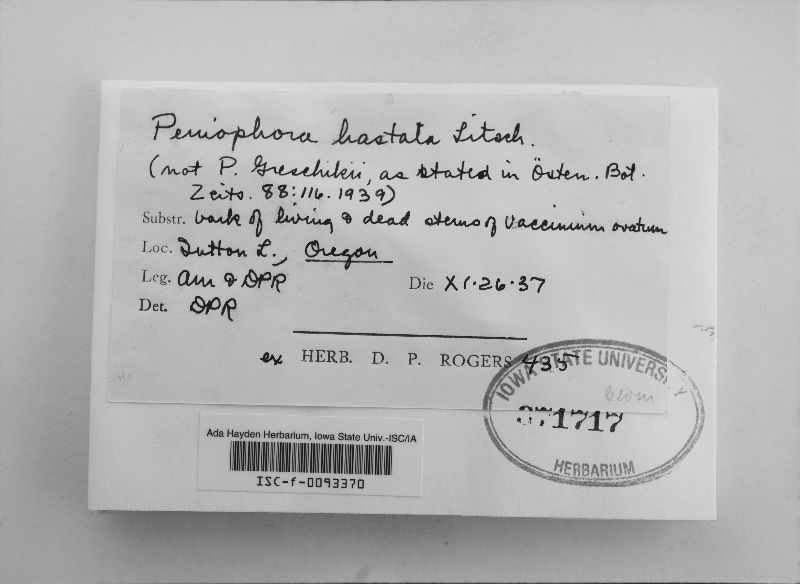 Peniophora hastata Litsch.
(not P. Greschikii, as stated in Österr. Bot.
Zeits. 88:116. 1939)
Substr. bark of living & dead stems of Vaccinium ovatum
Loc. Sutton L., Oregon
Leg. AM & DPR Die XI·26·37
Det. DPR
ex HERB. D. P. ROGERS 435
IOWA STATE UNIVERSITY
371717
HERBARIUM
Ada Hayden Herbarium, Iowa State Univ.-ISC/IA
ISC-f-0093370